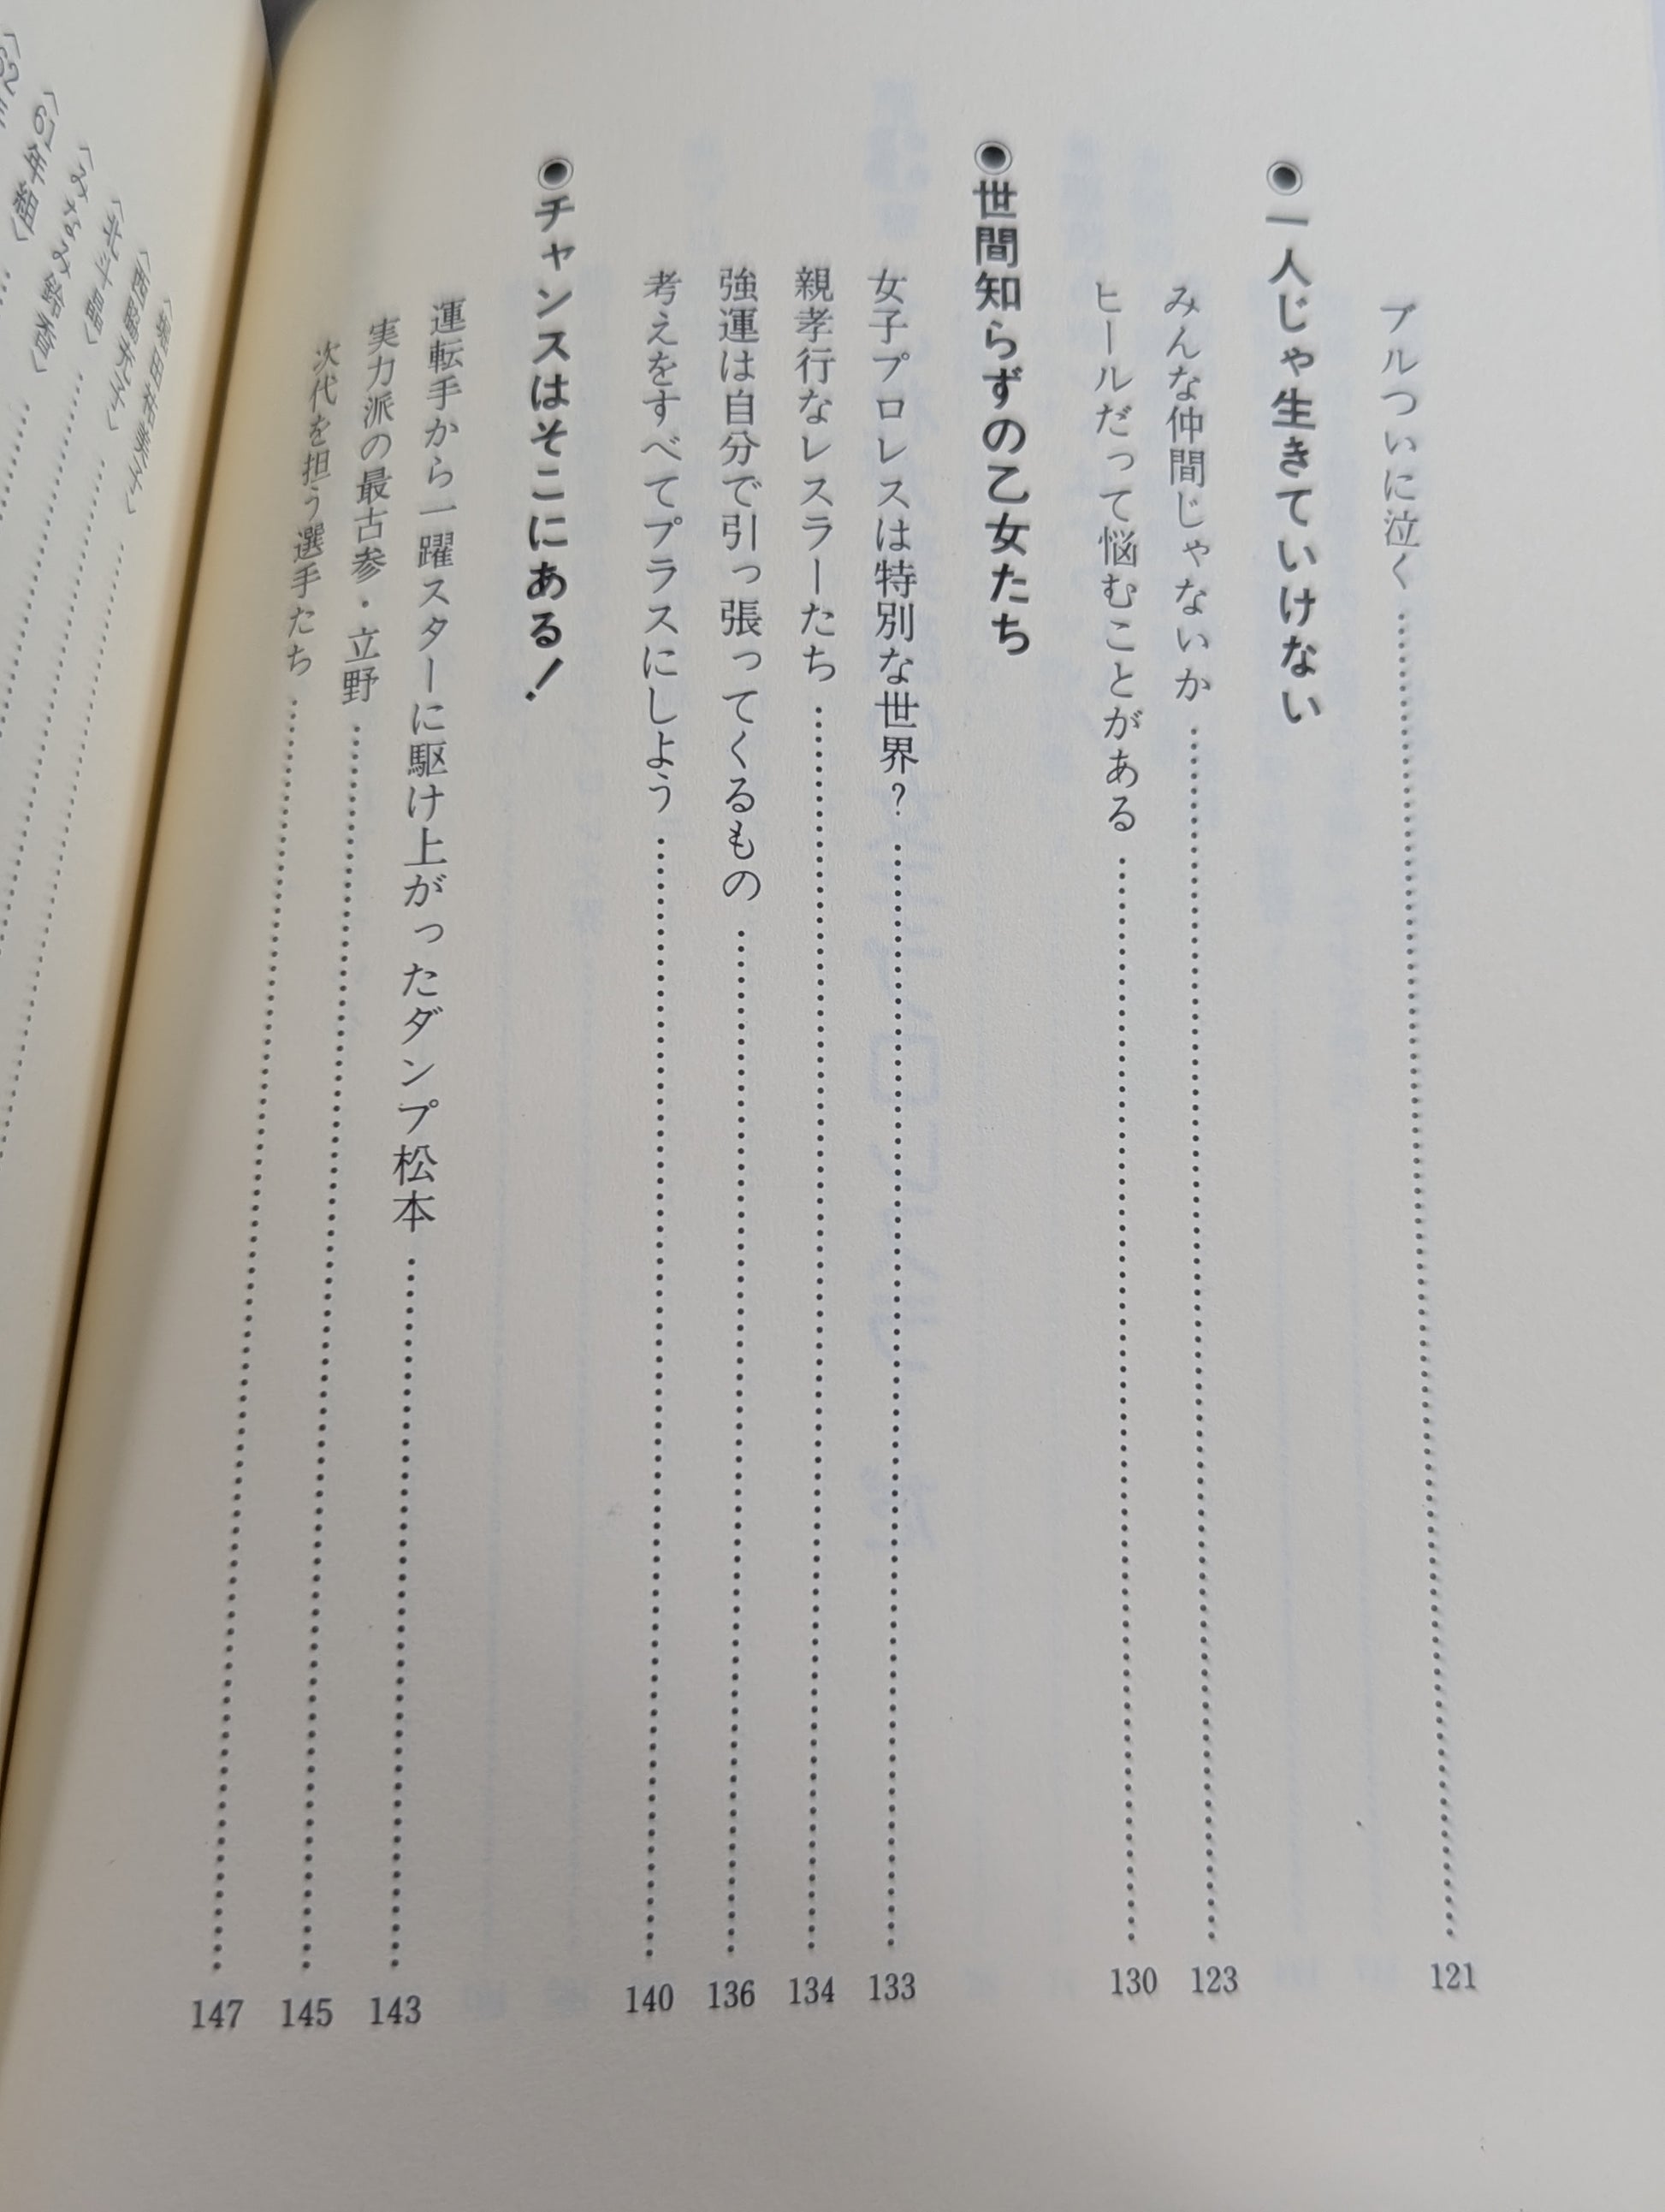 ブルついに泣く……121
◉一人じゃ生きていけない
みんな仲間じゃないか……123
ヒールだって悩むことがある……130
◉世間知らずの乙女たち
女子プロレスは特別な世界?……133
親孝行なレスラーたち……134
強運は自分で引っ張ってくるもの……136
考えをすべてプラスにしよう……140
◉チャンスはそこにある!
運転手から一躍スターに駆け上がったダンプ松本……143
実力派の最古参・立野……145
次代を担う選手たち……147
〈北斗晶〉……
〈みなみ鈴香〉……
〈61年組〉……